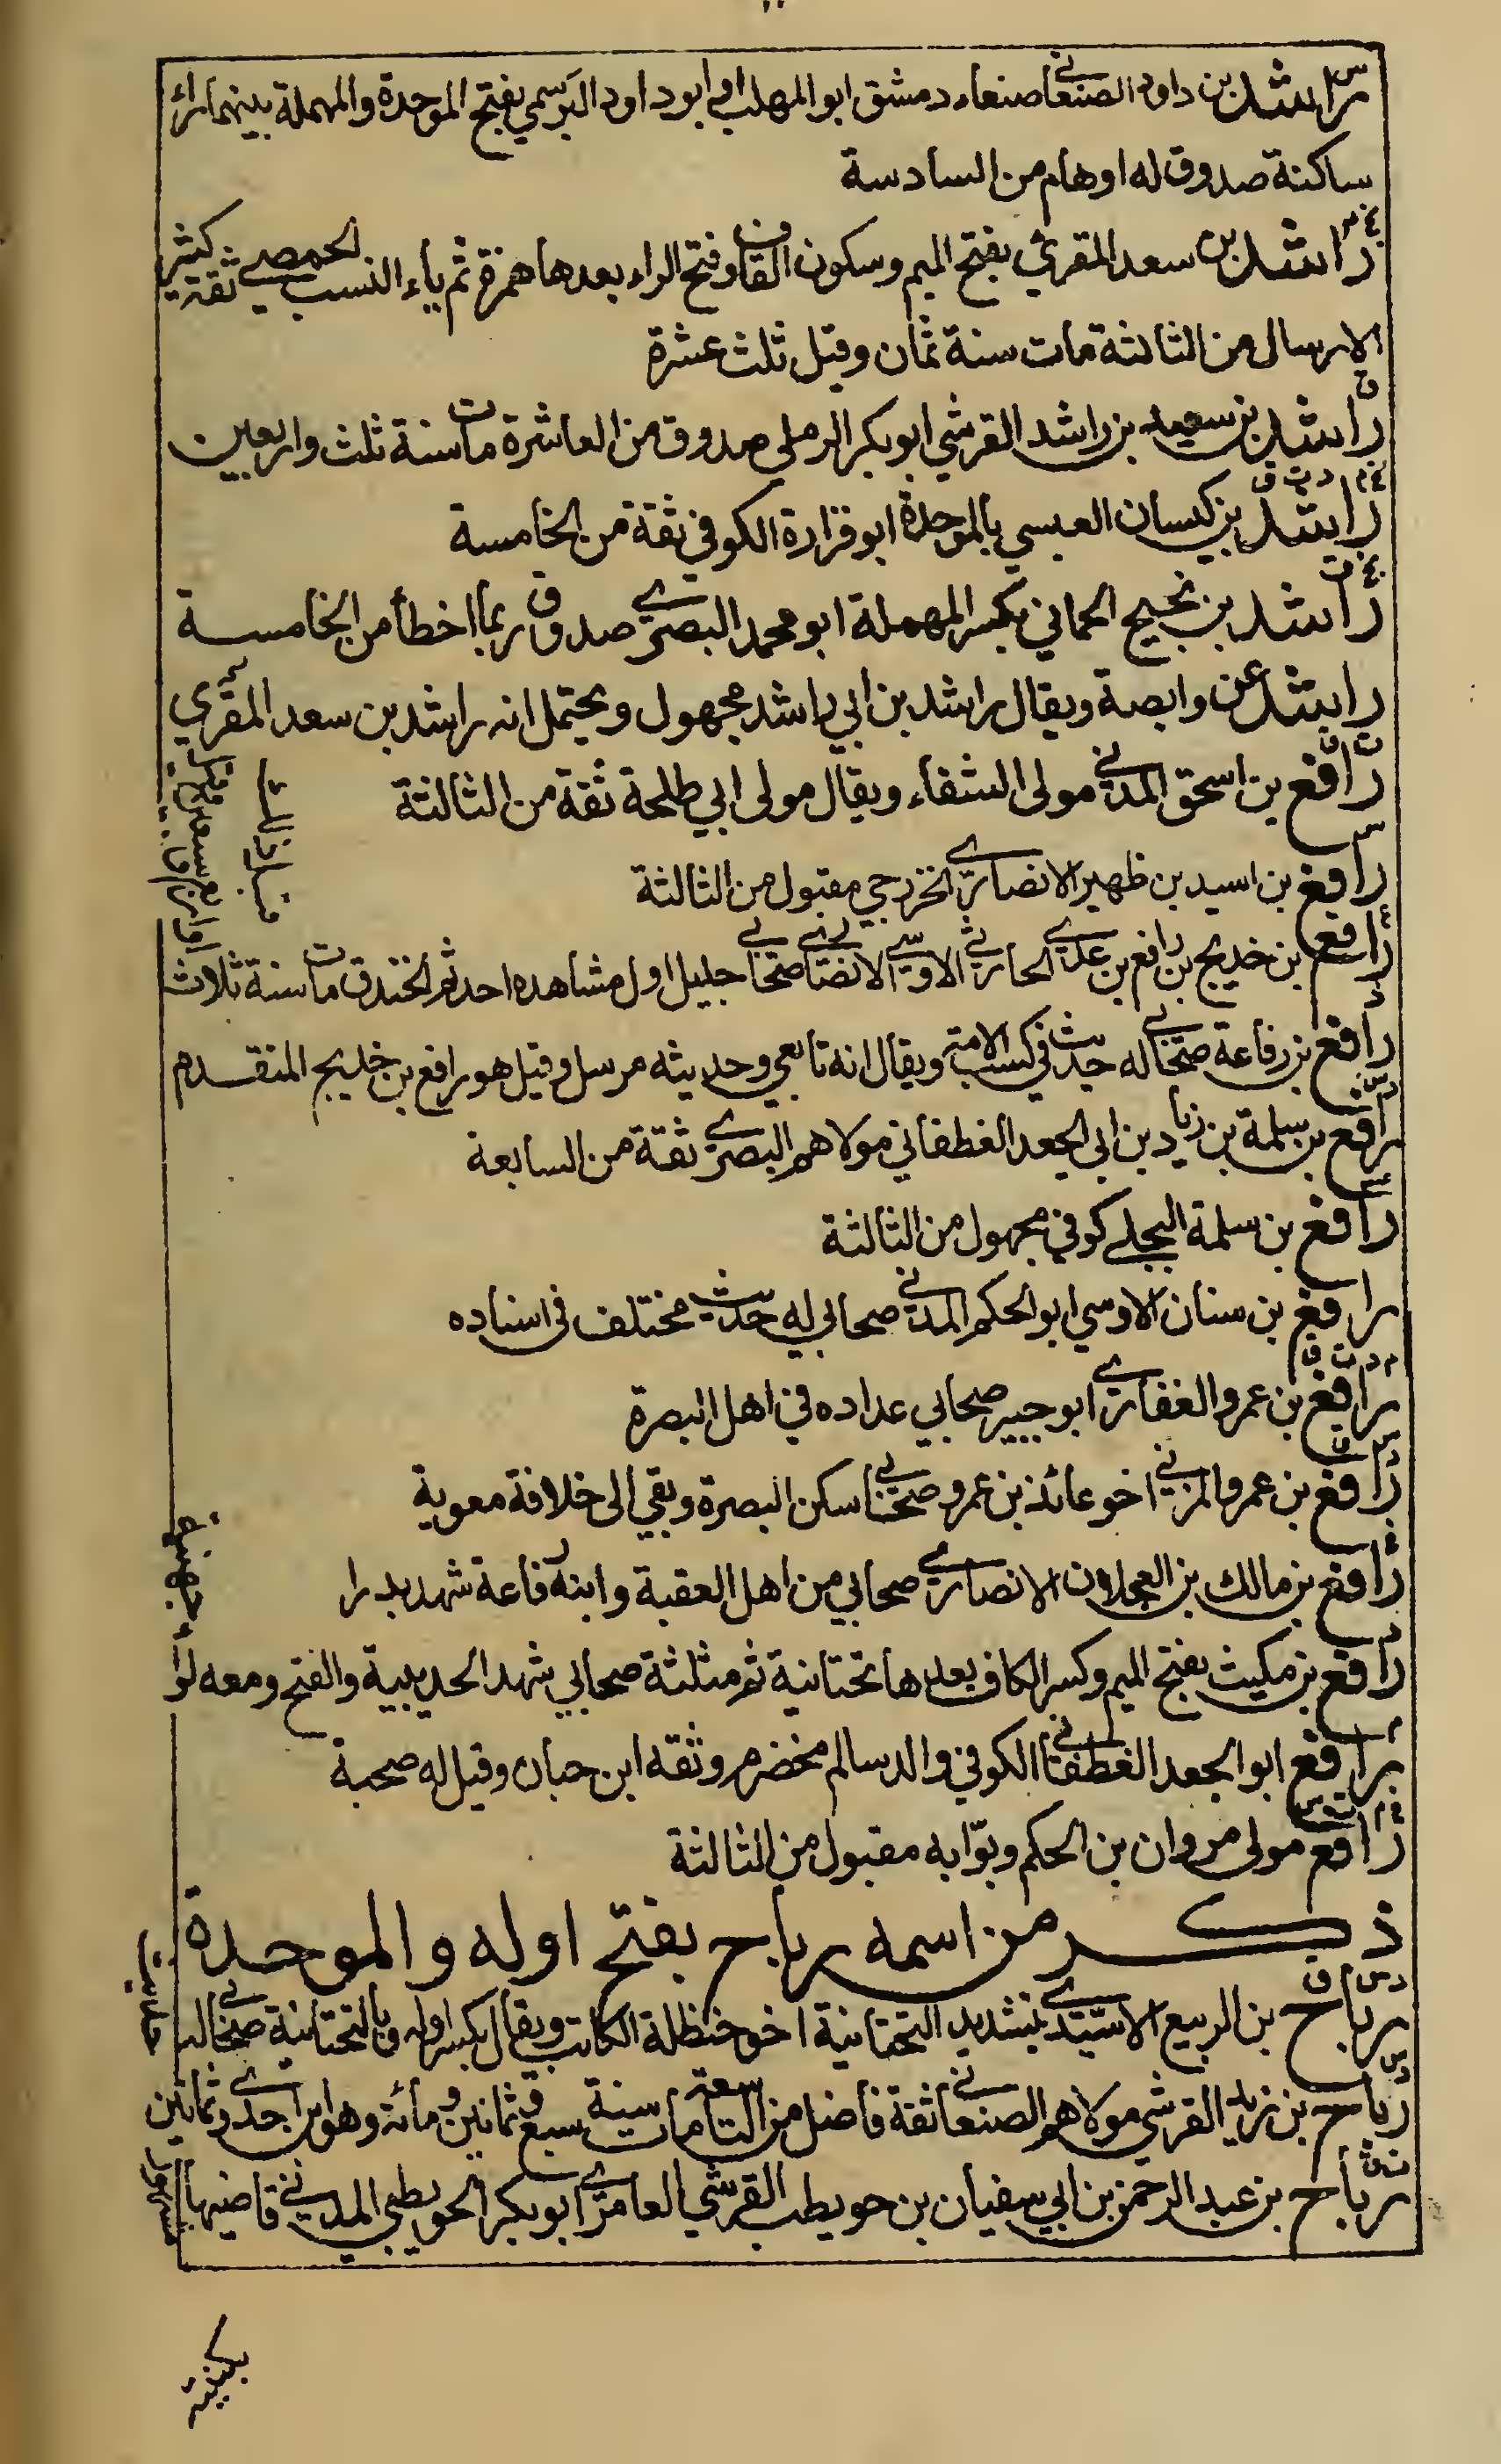 س
راشد بن داود الصنعاني صنعاء دمشق ابو المهلب او ابو داود البرسمي بفتح الموحدة والمهملة بينهما راء
ساكنة صدوق له اوهام من السادسة
بخ ٤
راشد بن سعد المقرئي بفتح الميم وسكون القاف وفتح الراء بعدها همزة ثم ياء النسب الحمصي ثقة كثير
الارسال من الثالثة مات سنة ثمان وقيل ثلث عشرة
ق
راشد بن سعيد بن راشد القرشي ابو بكر الرملي صدوق من العاشرة مات سنة ثلث واربعين
بخ م د ت ق
راشد بن كيسان العبسي بالموحدة ابو فزارة الكوفي ثقة من الخامسة
بخ ق
راشد بن نجيح الحماني بكسر المهملة ابو محمد البصري صدوق ربما اخطأ من الخامسة
راشد عن وابصة ويقال راشد بن ابي راشد مجهول ويحتمل انه راشد بن سعد المقرئي
ت س
رافع بن اسحق المدني مولى الشفاء ويقال مولى ابي طلحة ثقة من الثالثة
س
رافع بن اسيد بن ظهير الانصاري الخزرجي مقبول من الثالثة
ع
رافع بن خديج بن رافع بن عدي الحارثي الاوسي الانصاري صحابي جليل اول مشاهده احد ثم الخندق مات سنة ثلاث
د
رافع بن رفاعة صحابي له حديث في كسب الامة ويقال انه تابعي وحديثه مرسل وقيل هو رافع بن خديج المتقدم
د س
رافع بن سلمة بن زياد بن ابي الجعد الغطفاني مولاهم البصري ثقة من السابعة
رافع بن سلمة البجلي كوفي مجهول من الثالثة
د س
رافع بن سنان الاوسي ابو الحكم المدني صحابي له حديث مختلف في اسناده
م د ت ق
رافع بن عمرو الغفاري ابو جبير صحابي عداده في اهل البصرة
د س ق
رافع بن عمرو المزني اخو عائذ بن عمرو صحابي سكن البصرة وبقي الى خلافة معوية
خ
رافع بن مالك بن العجلان الانصاري صحابي من اهل العقبة وابنه رفاعة شهد بدرا
د
رافع بن مكيث بفتح الميم وكسر الكاف بعدها تحتانية ثم مثلثة صحابي شهد الحديبية والفتح ومعه لوأ
جهينة
م
رافع ابو الجعد الغطفاني الكوفي والد سالم مخضرم وثقه ابن حبان وقيل له صحبة
خ م ت س
رافع مولى مروان بن الحكم وبوّابه مقبول من الثالثة
ذكر من اسمه رباح بفتح اوله والموحدة
د س ق
رباح بن الربيع الاسيّدي بتشديد التحتانية اخو حنظلة الكاتب ويقال بكسر اوله وبالتحتانية صحابي له
حديث
د س
رباح بن زيد القرشي مولاهم الصنعاني ثقة فاضل من التاسعة مات سنة سبع وثمانين ومائة وهو ابن احدى وثمانين
ت ق
رباح بن عبد الرحمن بن ابي سفيان بن حويطب القرشي العامري ابو بكر الحويطبي المدني قاضيها
مشهور
بكنيته